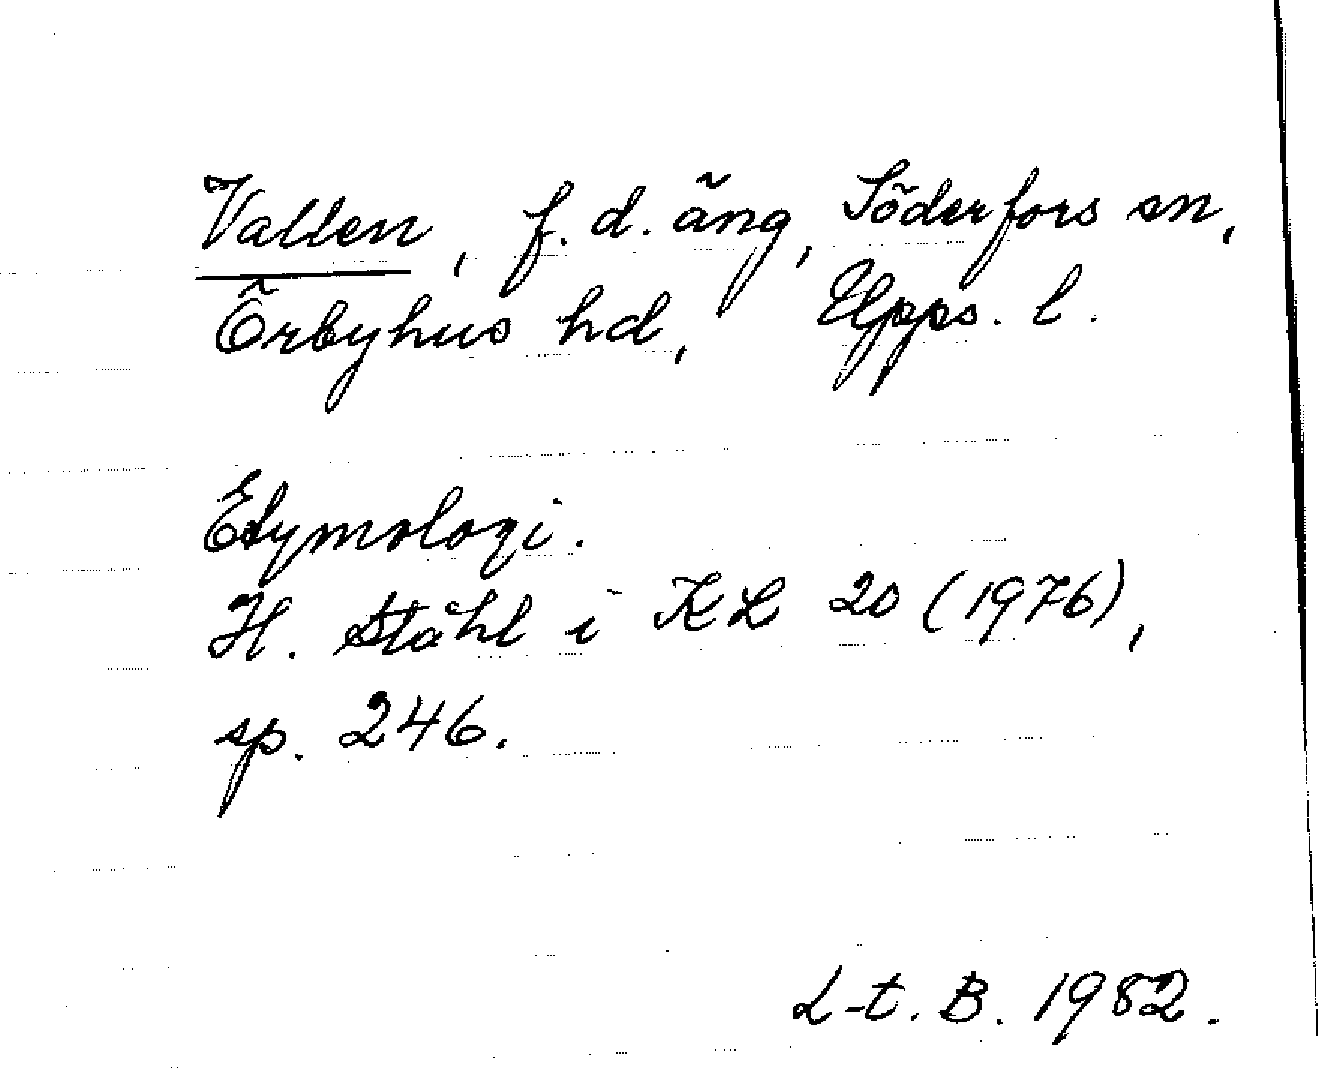 Vallen, f. d. äng, Söderfors sn,
Örbyhus hd, Upps. l.
Etymologi.
H. Ståhl i KL 20 (1976),
sp. 246.
L-t. B. 1982.